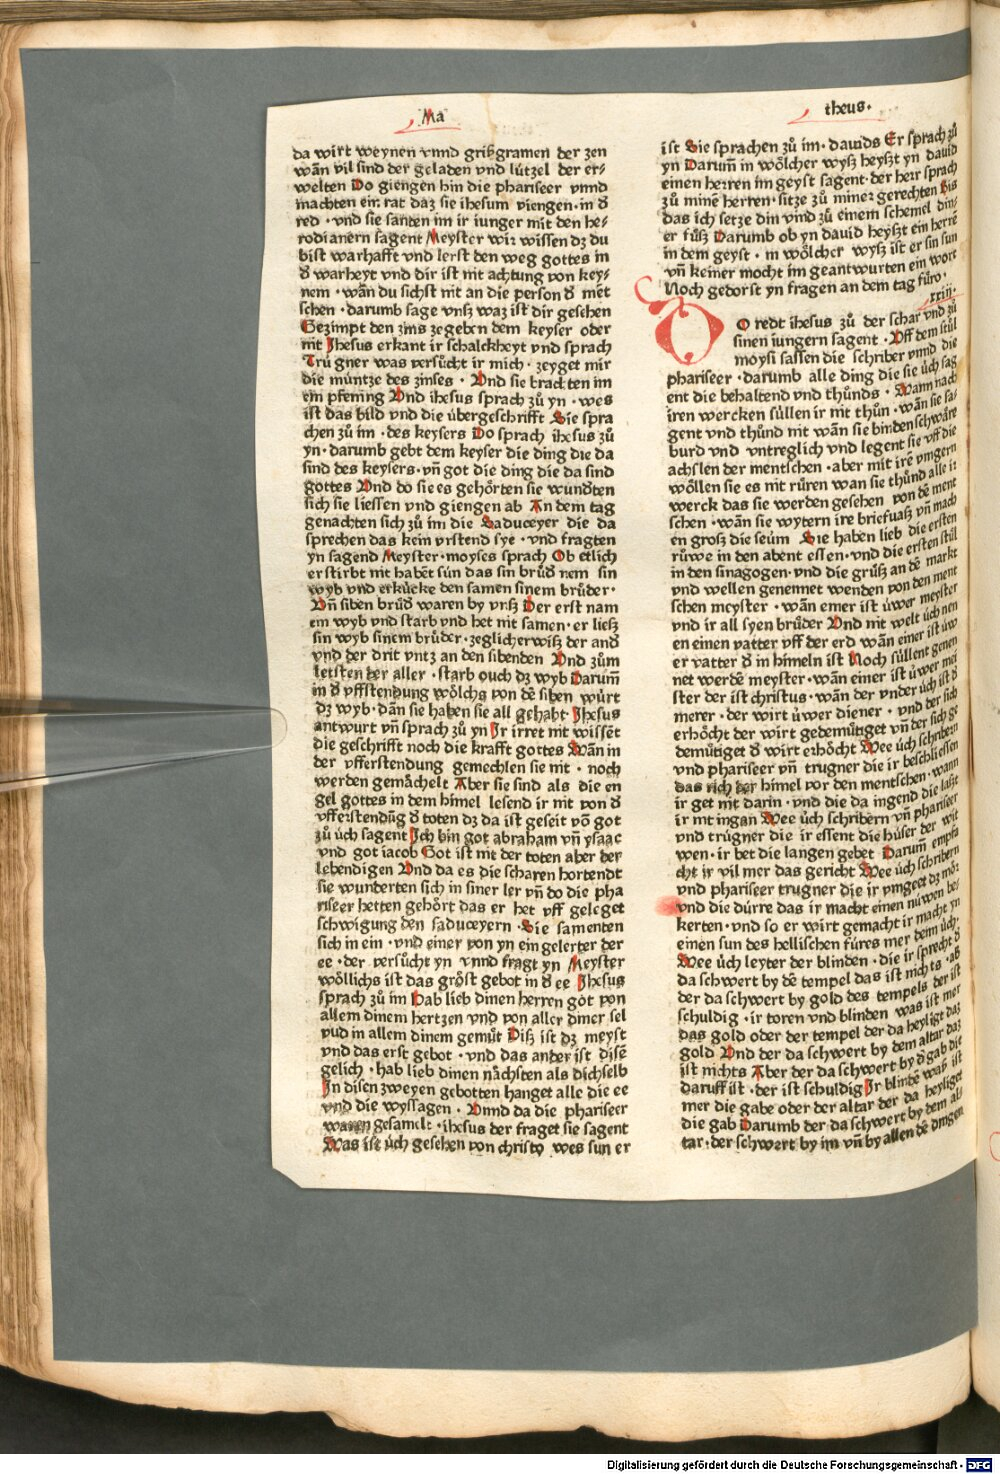 Ma
da wirt weynen vnnd grißgramen der zen
wañ vil sind der geladen vnd lützel der er⸗
welten Do giengen hin die phariseer vnnd
machten ein rat daz sie ihesum viengen · in d̕
red · vnd sie santen im ir iunger mit den he⸗
rodianern sagent Meyster wir wissen dz du
bist warhafft vnd lerst den weg gottes in
d̕ warheyt vnd dir ist nit achtung von key⸗
nem · wañ du sichst nit an die person d̕ mēt
schen · darumb sage vnsz waz ist dir gesehen
Gezimpt den zins zegeben dem keyser oder
nit Jhesus erkant ir schalckheyt vnd sprach
Trügner was versücht ir mich · zeyget mir
die müntze des zinses · Vnd sie brachten im
ein pfening Vnd ihesus sprach zů yn · wes
ist das bild vnd die übergeschrifft Sie spra
chen zů im · des keysers Do sprach ihesus zů
yn · darumb gebt dem keyser die ding die da
sind des keysers · vñ got die ding die da sind
gottes Vnd do sie es gehörten sie wundten
sich sie liessen vnd giengen ab An dem tag
genachten sich zů im die Saduceyer die da
sprechen das kein vrstend sye · vnd fragten
yn sagend Meyster · moyses sprach Ob etlich
er stirbt nit habēt sün das sin brůd̕ nem sin
wyb vnd erkücke den samen sinem brůder ·
Vñ siben brůd̕ waren by vnsz Der erst nam
em wyb vnd starb vnd het nit samen · er liesz
sin wyb sinem brůder · zeglicherwisz der and̕
vnd der drit vntz an den sibenden Vnd zům
letsten der aller · starb ouch dz wyb Darum̄
in d̕ vffstendung wölchs von dē siben würt
dz wyb · dañ sie haben sie all gehabt · Jhesus
antwurt vñ sprach zů yn Jr irret nit wissēt
die geschrifft noch die krafft gottes Wañ in
der vfferstendung gemechlen sie nit · noch
werden gemächelt Aber sie sind als die en
gel gottes in dem himel lesend ir nit von d̕
vfferstendūg d̕ toten dz da ist geseit vō got
zů üch sagent Jch bin got abraham vñ ysaac
vnd got iacob Got ist nit der toten aber der
lebendigen Vnd da es die scharen hortendt
sie wunderten sich in siner ler vñ do die pha
riseer hetten gehört das er het vff geleget
schwigung den saduceyern · Sie samenten
sich in ein · vnd einer von yn ein gelerter der
ee · der versücht yn vnnd fragt yn Meyster
wöllichs ist das gröst gebot in d̕ ee Jhesus
sprach zů im Hab lieb dinen herren got von
allem dinem hertzen vnd von aller diner sel
vnd in allem dinem gemüt Diß ist dz meyst
vnd das erst gebot · vnd das ander ist disē
gelich · hab lieb dinen nächsten als dich selb
Jn disen zweyen gebotten hanget alle die ee
vnd die wyssagen · Vnnd da die phariseer
waren gesamelt · ihesus der fraget sie sagent
Was ist üch gesehen von christo wes sun er
theus ·
ist Sie sprachen zů im · dauids Er sprach zů
yn Darum̄ in wölcher wysz heyszt yn dauid
einen herren im geyst sagent · der herr sprach
zů minē herren · sitze zů miner gerechten Bis
das ich setze din vind zů einem schemel din⸗
er füsz Darumb ob yn dauid heyszt ein herrē
in dem geyst · in wölcher wysz ist er sin sun
vñ keiner mocht im geantwurten ein wort
Noch gedorst yn fragen an dem tag fůro ·
xxiij ·
DO redt ihesus zů der schar vnd zů
sinen iungern sagent · Vff dem stůl
moysi sassen die schriber vnnd die
phariseer · darumb alle ding die sie üch sag
ent die behaltend vnd thůnds · Wann nach
iren wercken süllen ir nit thůn · wañ sie sa⸗
gent vnd thůnd nit wañ sie binden schwäre
burd vnd vntreglich vnd legent sie vff die
achslen der mentschen · aber mit irē vingern
wöllen sie es nit rüren wan sie thůnd alle ir
werck das sie werden gesehen von dē ment
schen · wañ sie wytern ire briefuasz vñ mach
en grosz die seum Sie haben lieb die ersten
růwe in den abent essen · vnd die ersten stůl
in den sinagogen · vnd die grůsz an dē markt
vnd wellen genennet wenden von den ment
schen meyster · wañ emer ist üwer meyster
vnd ir all syen brüder Vnd nit welt üch nen
en einen vatter vff der erd wañ einer ist üw
er vatter d̕ in himeln ist Noch süllent genen
net werdē meyster · wañ einer ist üwer mei
ster der ist christus · wañ der vnder üch ist d̕
merer · der wirt üwer diener · vnd der sich
erhöcht der wirt gedemütiget vñ der sich ge
demütiget d̕ wirt erhöcht Wee üch schribern
vnd phariseer vñ trugner die ir beschliessen
das rich der himel vor den mentschen · wann
ir get nit darin · vnd die da ingend die laszt
ir nit ingan Wee üch schribern vñ phariseer
vnd trügner die ir essent die hüser der wit
wen · ir bet die langen gebet Darum̄ empfa
cht ir vil mer das gericht Wee üch schribern
vnd phariseer trugner die ir vmgeet dz mör
vnd die dürre das ir macht einen nüwen be⸗
kerten · vnd so er wirt gemacht ir macht yn
einen sun des hellischen fúres mer denn üch ·
Wee üch leyter der blinden · die ir sprecht d̕
da schwert by dē tempel das ist nichts · ab
der da schwert by gold des tempels der ist
schuldig · ir toren vnd blinden was ist mer
das gold oder der tempel der da heyligt daz
gold Vnd der da schwert by dem altar daz
ist nichts Aber der da schwert by d̕ gab die
daruff ist · der ist schuldig Jr blindē was ist
mer die gabe oder der altar der da heyliget
die gab Darumb der da schwert by dem al⸗
tar · der schwert by im vñ by allen dē dingen
Digitalisierung gefördert durch die Deutsche Forschungsgemeinschaft - DFG